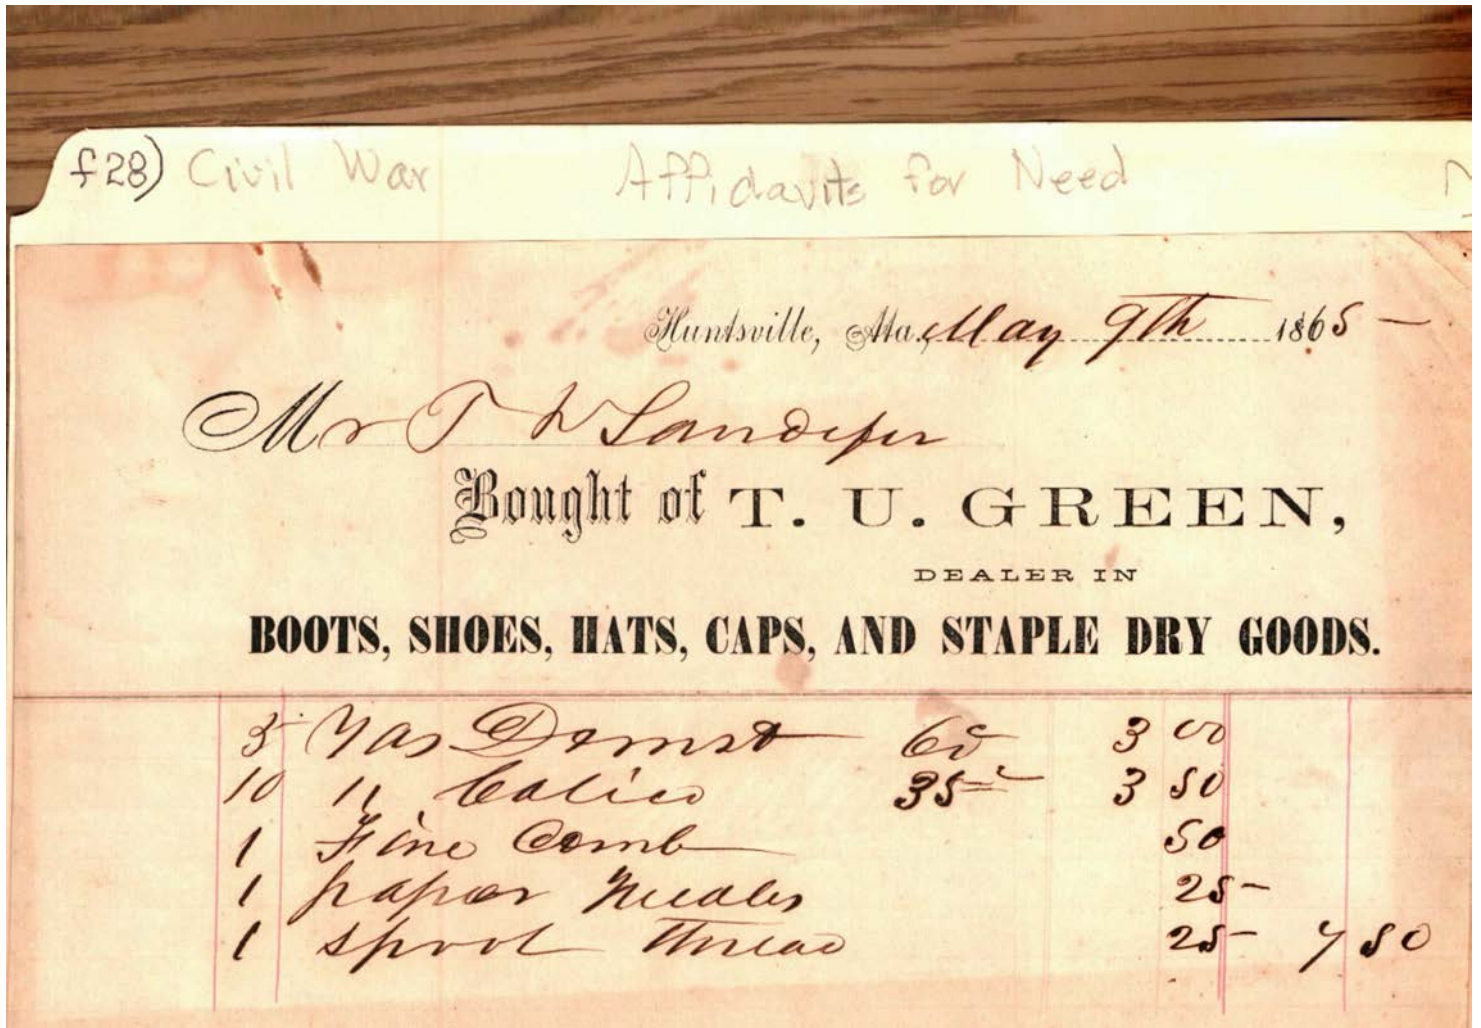 f28) Civil War Affidavits for Need
Huntsville, Ala., May 9th 1865
Mr T W Sandefer
Bought of T. U. GREEN,
DEALER IN
BOOTS, SHOES, HATS, CAPS, AND STAPLE DRY GOODS.
5 Yds Domst 60 3 00
10 " Calico 35 3 50
1 Fine Comb 50
1 paper Needles 25
1 Spool Thread 25 7 50